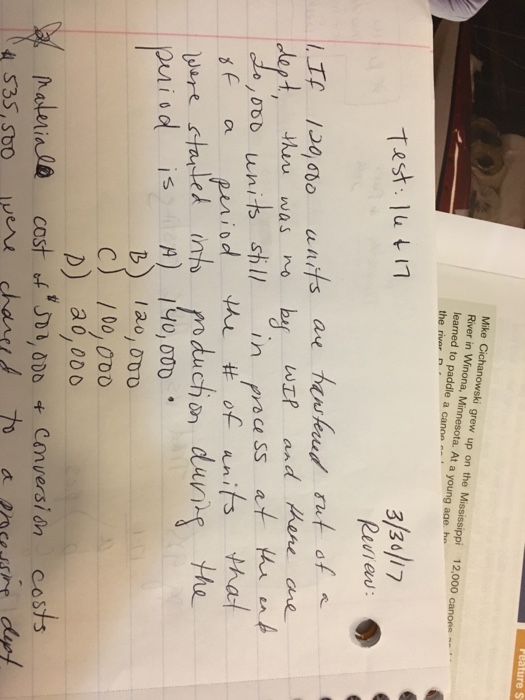 Feature
Mike Cichanowski grew up on the Mississippi
River in Winona, Minnesota. At a young age he
learned to paddle a canoe
the river.
12,000 canoes
Test: 16 & 17
3/30/17
Review:
1. If 120,000 units are transferred out of a
dept, there was no beg WIP and there are
20,000 units still in process at the end
of a period the # of units that
were started into production during the
period is A) 140,000.
B) 120,000
C) 100,000
D) 20,000
2) materials cost of $500,000 + conversion costs
$ 535,500 were charged to a processing dept.